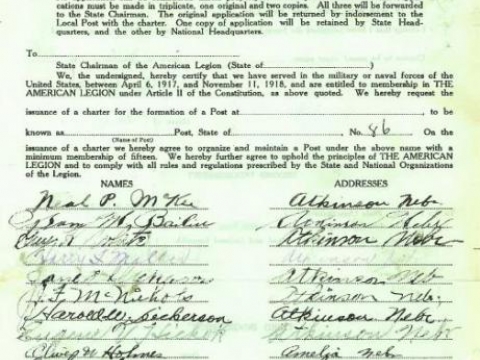 cations must be made in triplicate, one original and two copies. All three will be forwarded
to the State Chairman. The original application will be returned by indorsement to the
Local Post with the charter. One copy of application will be retained by State Head-
quarters, and the other by National Headquarters.
To
State Chairman of the American Legion (State of )
We, the undersigned, hereby certify that we have served in the military or naval forces of the
United States, between April 6, 1917, and November 11, 1918, and are entitled to membership in THE
AMERICAN LEGION under Article II of the Constitution, as above quoted. We hereby request the
issuance of a charter for the formation of a Post at , to be
known as Post, State of , No. 86 On the
(Name of Post)
issuance of a charter we hereby agree to organize and maintain a Post under the above name with a
minimum membership of fifteen. We hereby further agree to uphold the principles of THE AMERICAN LEGION
and to comply with all rules and regulations prescribed by the State and National Organizations
of the Legion.
NAMES ADDRESSES
Neal P. McKee Atkinson Nebr.
M. Atkinson Nebr
Guy Atkinson Nebr
Harry
Atkinson Neb
McNichols Atkinson Neb.
Harold W. Atkinson Neb
Atkinson Nebr
Oliver W Holmes Amelia Neb